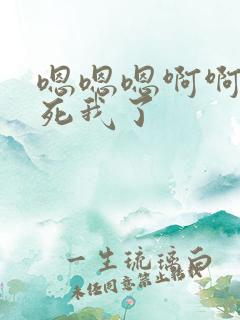 嗯嗯嗯啊啊
死我了
一生琉璃白
未经同意禁止转载